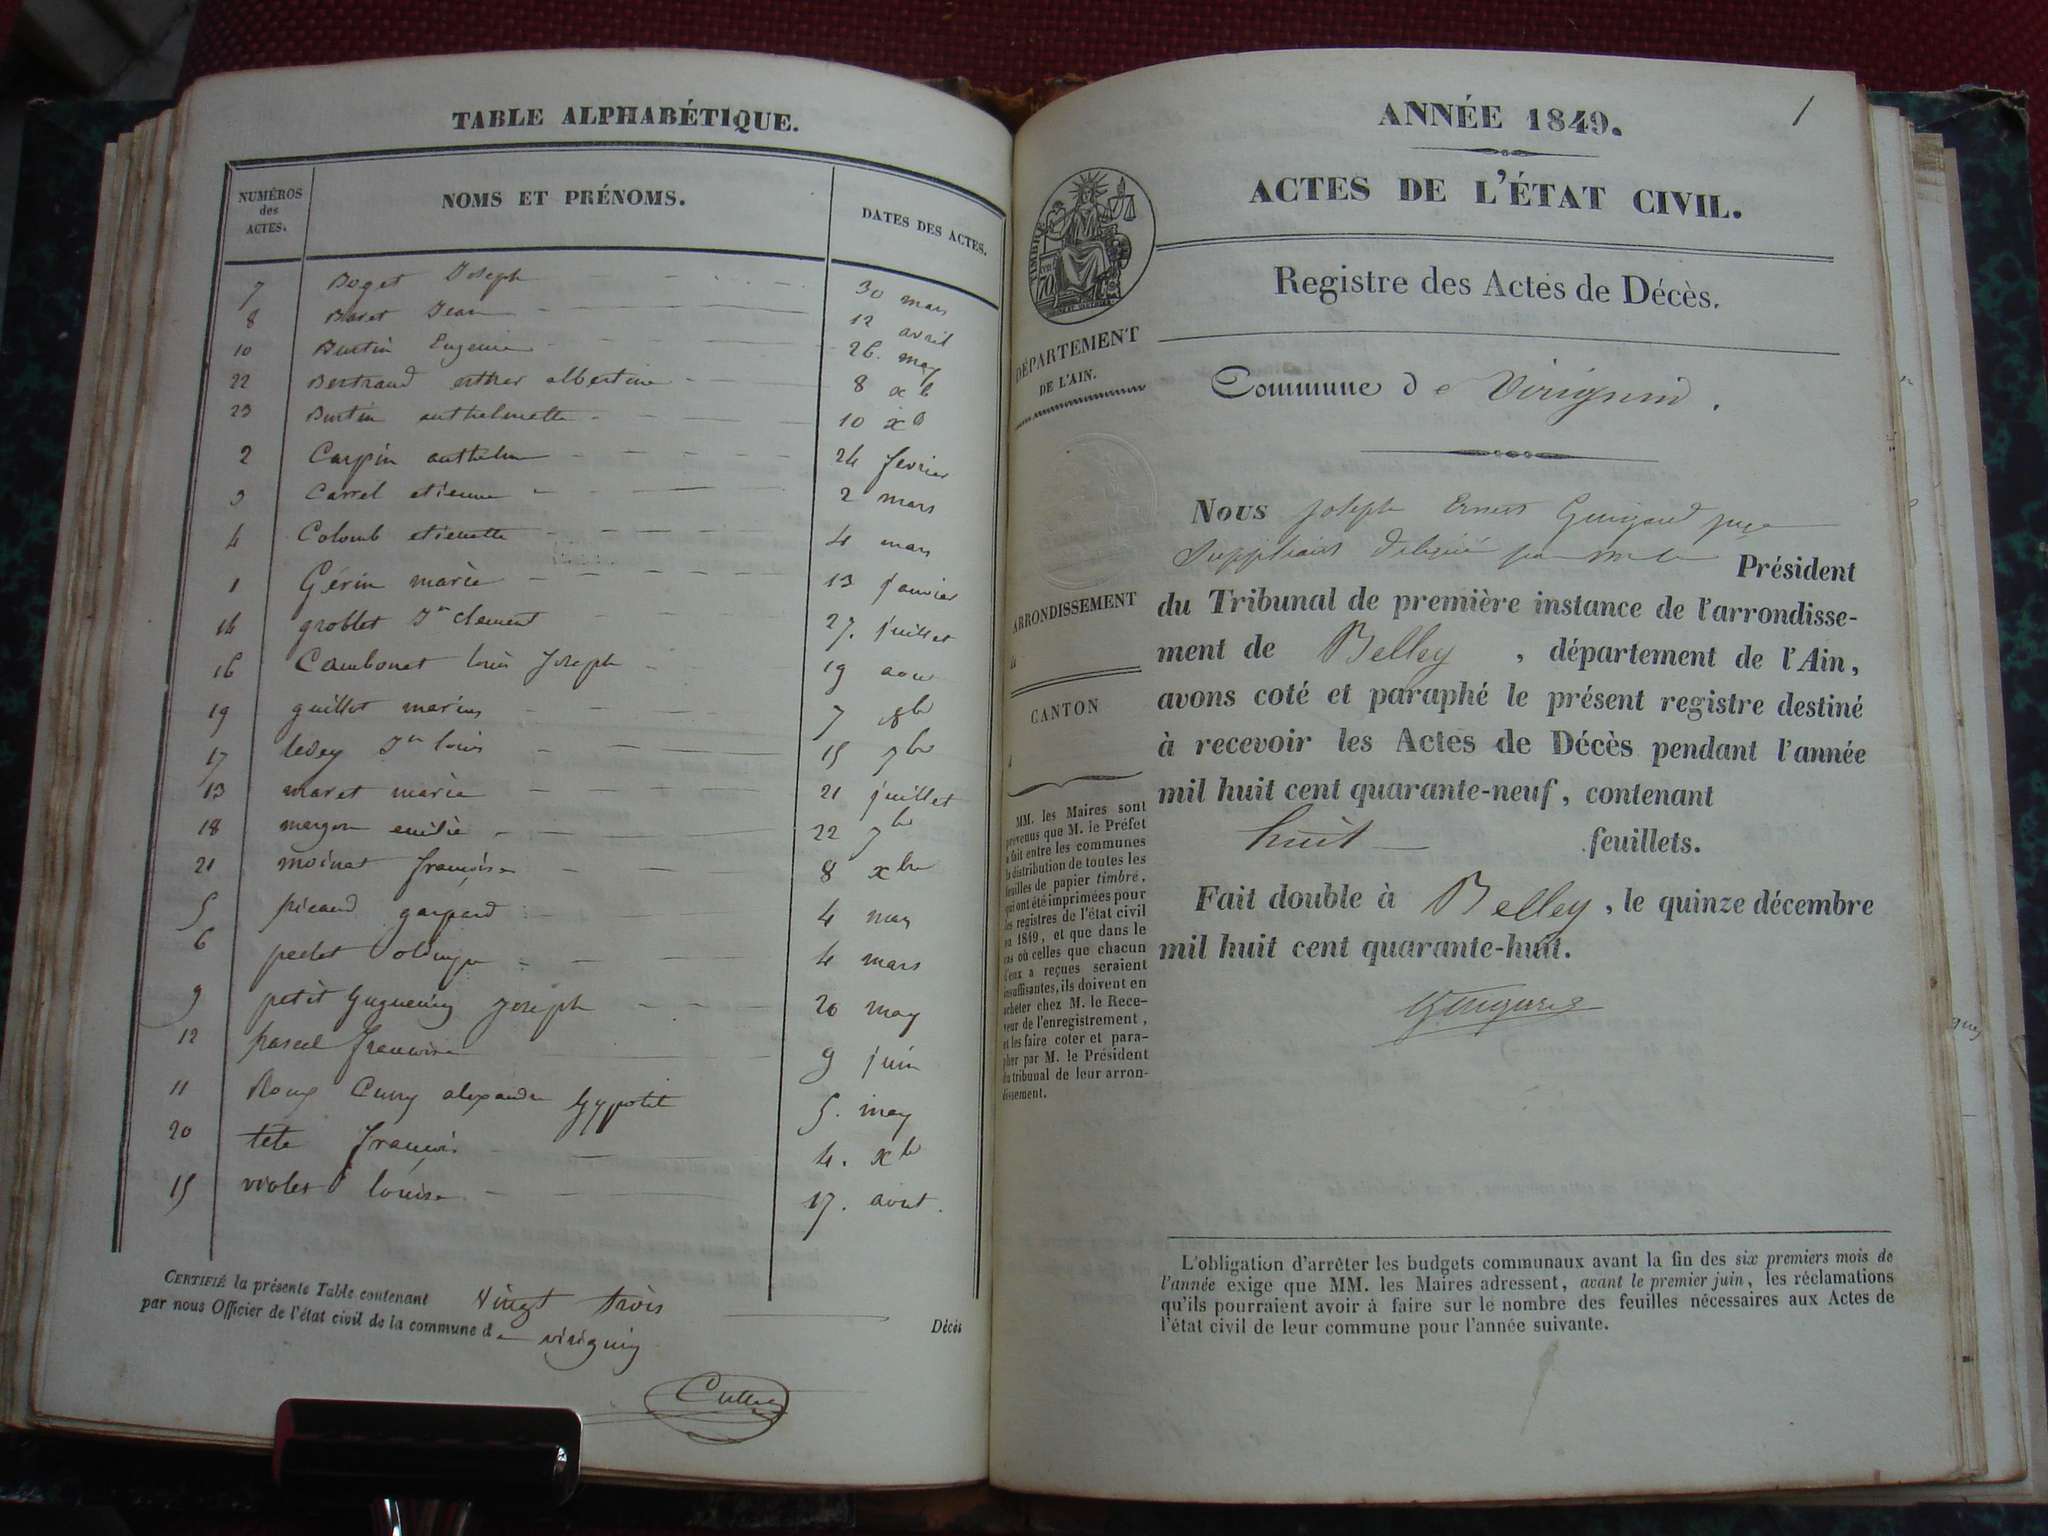 TABLE ALPHABÉTIQUE.
NUMÉROS des ACTES. NOMS ET PRÉNOMS. DATES DES ACTES.
7 Boget Joseph 30 mars
8 Jean 12 avril
10 Burtin Eugenie 26. may
22 Bertrand esther albertine 8 xb
23 Burtin anthelmette 10 xb
2 Carpin anthelme 24 fevrier
3 Carrel etienne 2 mars
4 Colomb etiennette 4 mars
1 Gérin marie 13 janvier
14 groblet Jn clement 27. juillet
16 Cambonet louis Joseph 19 aout
19 guillet marius 7 8bre
17 Jn louis 15 7bre
13 maret marie 21 juillet
18 emilie 22 7bre
21 moinet françoise 8 xbre
5 picaud gaspard 4 mars
6 4 mars
9 petit huguenin Joseph 20 may
12 pascal francoise 9 juin
11 Roux Curny alexandre hyppolit 5. may
20 tete françois 4. xb
15 violet louise 17. aout.
CERTIFIÉ la présente Table contenant vingt trois Décès
par nous Officier de l'état civil de la commune de virignin
1
ANNÉE 1849.
ACTES DE L'ÉTAT CIVIL.
Registre des Actes de Décès.
TIMBRE
70
DÉPARTEMENT
DE L'AIN.
Commune de Virignin.
Nous Joseph Ernest juge
suppléant délégué par mr le Président
du Tribunal de première instance de l'arrondisse-
ment de Belley, département de l'Ain,
avons coté et paraphé le présent registre destiné
à recevoir les Actes de Décès pendant l'année
mil huit cent quarante-neuf, contenant
huit feuillets.
Fait double à Belley, le quinze décembre
mil huit cent quarante-huit.
ARRONDISSEMENT
CANTON
MM. les Maires sont
prévenus que M. le Préfet
a fait entre les communes
la distribution de toutes les
feuilles de papier timbré,
qui ont été imprimées pour
les registres de l'état civil
en 1849, et que dans le
cas où celles que chacun
d'eux a reçues seraient
insuffisantes, ils doivent en
acheter chez M. le Rece-
veur de l'enregistrement,
et les faire coter et para-
pher par M. le Président
du tribunal de leur arron-
dissement.
L'obligation d'arrêter les budgets communaux avant la fin des six premiers mois de
l'année exige que MM. les Maires adressent, avant le premier juin, les réclamations
qu'ils pourraient avoir à faire sur le nombre des feuilles nécessaires aux Actes de
l'état civil de leur commune pour l'année suivante.